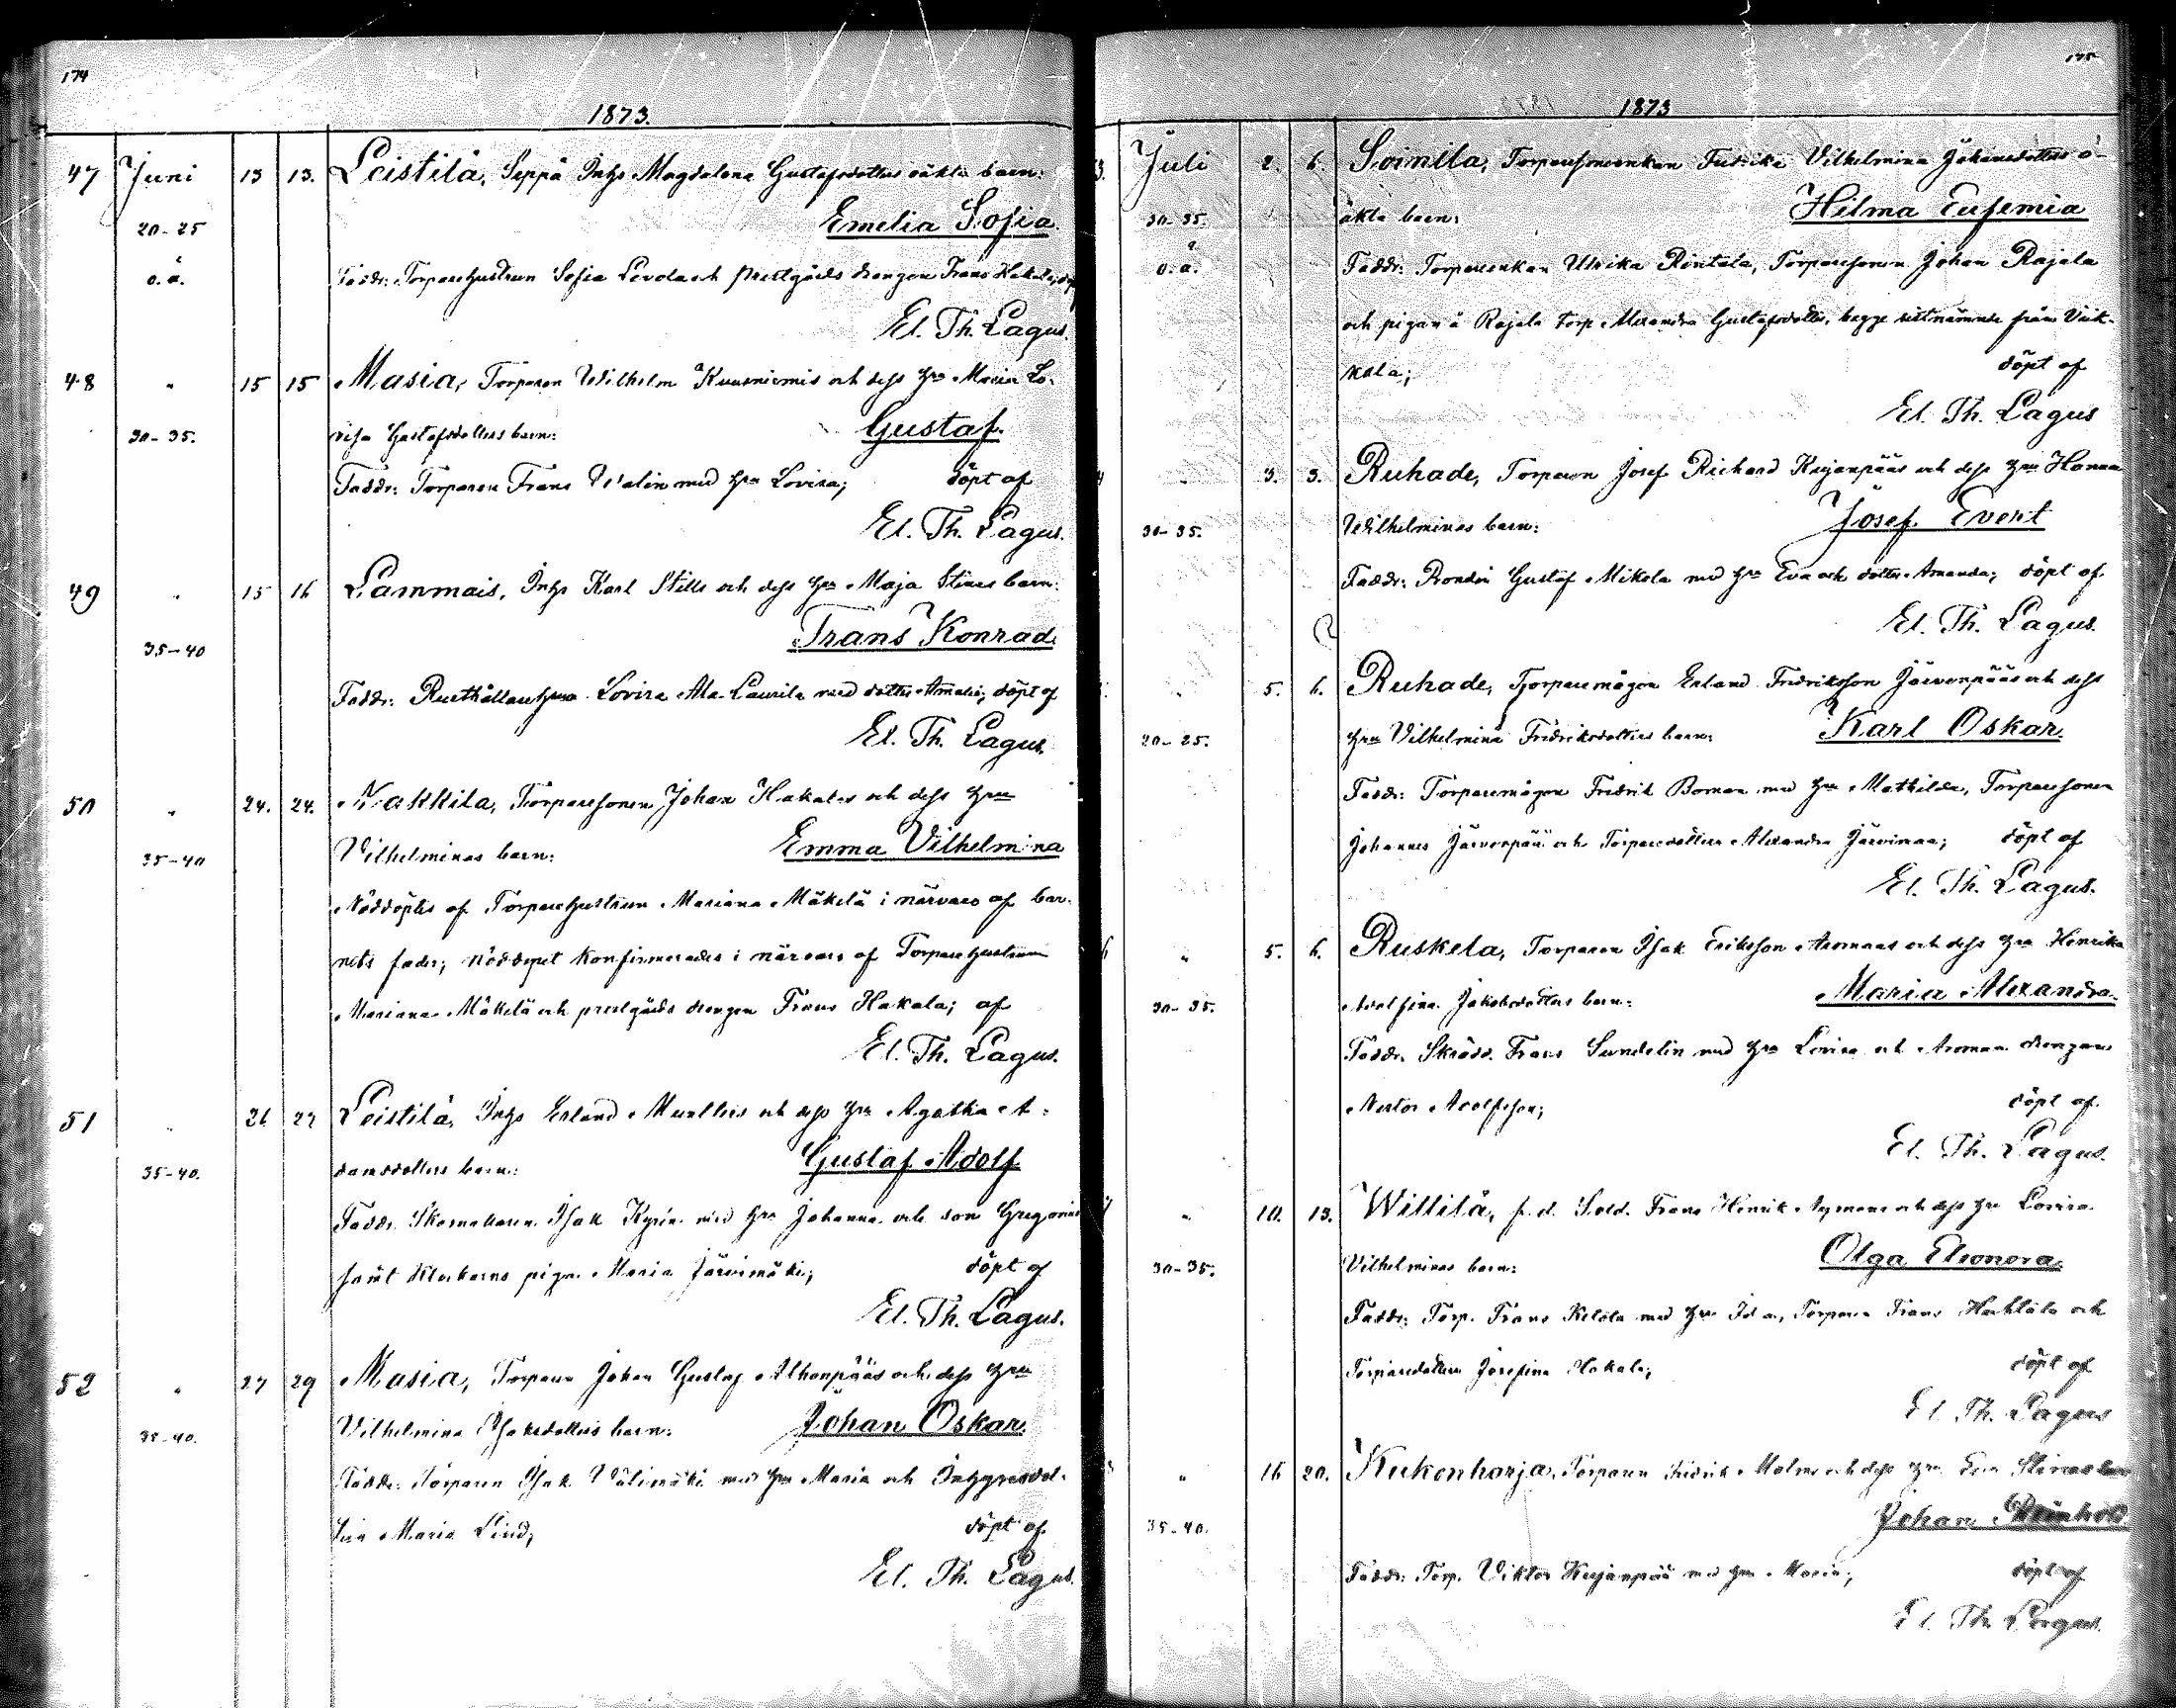 174
1873.
47 Juni 13 13. Leistilä, Seppä Inhs Magdalena Gustafsdotters oäkta barn:
20-25 Emelia Sofia.
o.ä. Faddr: Torparehustrun Sofia Levola och prestgårds drengen Frans Hakala;
El. Th. Lagus.
48 " 15 15 Masia, Torparen Wilhelm Kuusniemis och dess hru Maria Lo-
30-35. visa Gustafsdotters barn: Gustaf.
Faddr: Torparen Frans Walin med hru Lovisa; döpt af
El. Th. Lagus.
49 " 15 16 Lammais, Inhs Karl Stills och dess hru Maja Stinas barn:
35-40 Frans Konrad.
Faddr: Rusthållarehru Lovisa Ala-Laurila med dotter Amalia; döpt af
El. Th. Lagus.
50 " 24. 24. Nakkila, Torparesonen Johan Hakalas och dess hru
35-40 Vilhelminas barn: Emma Vilhelmina
Nöddöptes af Torparehustrun Mariana Mäkelä i närvaro af bar-
nets fader; nöddopet konfirmerades i närvaro af Torparehustrun
Mariana Mäkelä och prestgårds drengen Frans Hakala; af
El. Th. Lagus.
51 " 26 27 Leistilä, Inhs Erland och dess hru Agatha A-
35-40. damsdotters barn: Gustaf Adolf.
Faddr. Skomakaren Isak Kyrén med hru Johanna och son Gregorius
samt klockarns piga Maria Järvimäki; döpt af
El. Th. Lagus.
52 " 27 29 Masia, Torparen Johan Gustaf Alhonpääs och dess hru
35-40. Vilhelmina Isaksdotters barn: Johan Oskar.
Faddr: Torparen Isak Välimäki med hru Maria och Inhysesdot-
tern Maria Lind; döpt af
El. Th. Lagus.
175
1873
3. Juli 2. 6. Soinila, Torparesonenkan Fredrika Vilhelmina Johansdotters o-
30-35. äkta barn: Hilma Eufemia
o.ä. Faddr: Torpareenkan Ulrika Rintala, Torparesonen Johan Rajala
och pigan å Rajala torp Alexandra Gustafsdotter, begge sistnämnde från Viik-
kala; döpt af
El. Th. Lagus
4 " 3. 3. Ruhade, Torparen Josef Richard Kujanpääs och dess hru Hanna
30-35. Wilhelminas barn: Josef Evert
Faddr: Bonden Gustaf Mikola med hru Eva och dotter Amanda; döpt af
El. Th. Lagus.
5 " 5. 6. Ruhade, Torparemågen Erland Fridriksson Järvenpääs och dess
20-25. hru Vilhelmina Fridriksdotters barn: Karl Oskar.
Faddr: Torparemågen Fredrik Boman med hru Mathilda, Torparesonen
Johannes Järvenpää och Torparedottern Alexandra Järvinmaa; döpt af
El. Th. Lagus.
6 " 5. 6. Ruskela, Torparen Isak Eriksson Aromaas och dess hru Henrika
30-35. Adolfina Jakobsdotters barn: Maria Alexandra.
Faddr. Skrädd. Frans Sundelin med hru Lovisa och Aromaa drengen
Nestor Adolfsson; döpt af
El. Th. Lagus.
7 " 10. 13. Willilä, f.d. Sold. Frans Henrik Nymans och dess hru Lovisa
30-35. Vilhelminas barn: Olga Eleonora.
Faddr: Torp. Frans Kelola med hru Ida, Torparen Frans och
Torparedottern Josefina Hakala; döpt af
El. Th. Lagus
8 " 16 20. Kukonharja, Torparen Fredrik Malms och dess hru Eva Stinas barn
35-40. Johan Reinhold
Faddr: Torp. Viktor Kujanpää med hru Maria; döpt af
El. Th. Lagus.